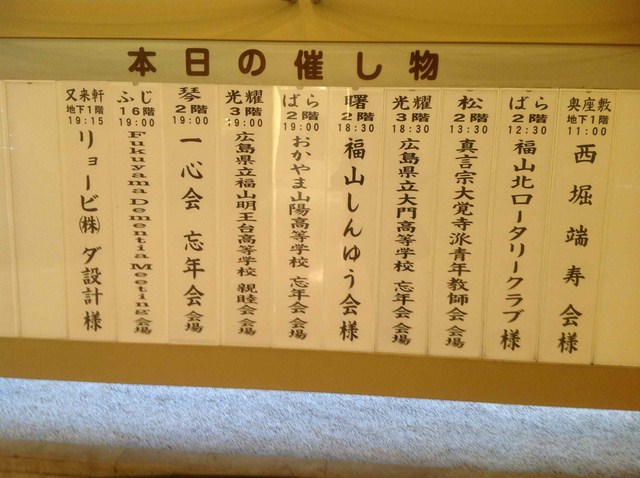 本日の催し物
奥座敷
地下1階
11:00
西堀端寿会様
ばら
2階
12:30
福山北ロータリークラブ様
松
2階
13:30
真言宗大覚寺派青年教師会会場
光耀
3階
18:30
広島県立大門高等学校 忘年会会場
曙
2階
18:30
福山しんゆう会様
ばら
2階
19:00
おかやま山陽高等学校 忘年会会場
光耀
3階
19:00
広島県立福山明王台高等学校 親睦会会場
琴
2階
19:00
一心会 忘年会会場
ふじ
16階
19:00
Fukuyama Dementia Meeting会場
又来軒
地下1階
19:15
リョービ㈱ダ設計様